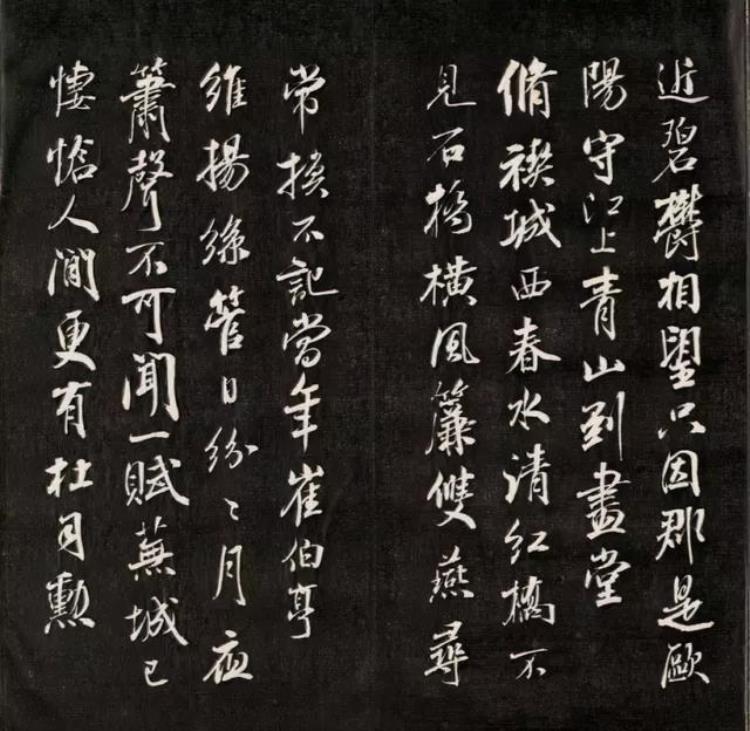 近碧欝相望只因郡是歐
陽守江上青山到畫堂
脩禊城西春水清紅橋不
見石橋橫風簾雙燕尋
常換不記當年崔伯亭
維揚絲管日紛〻月夜
簫聲不可聞一賦蕪城已
悽愴人間更有杜司勳